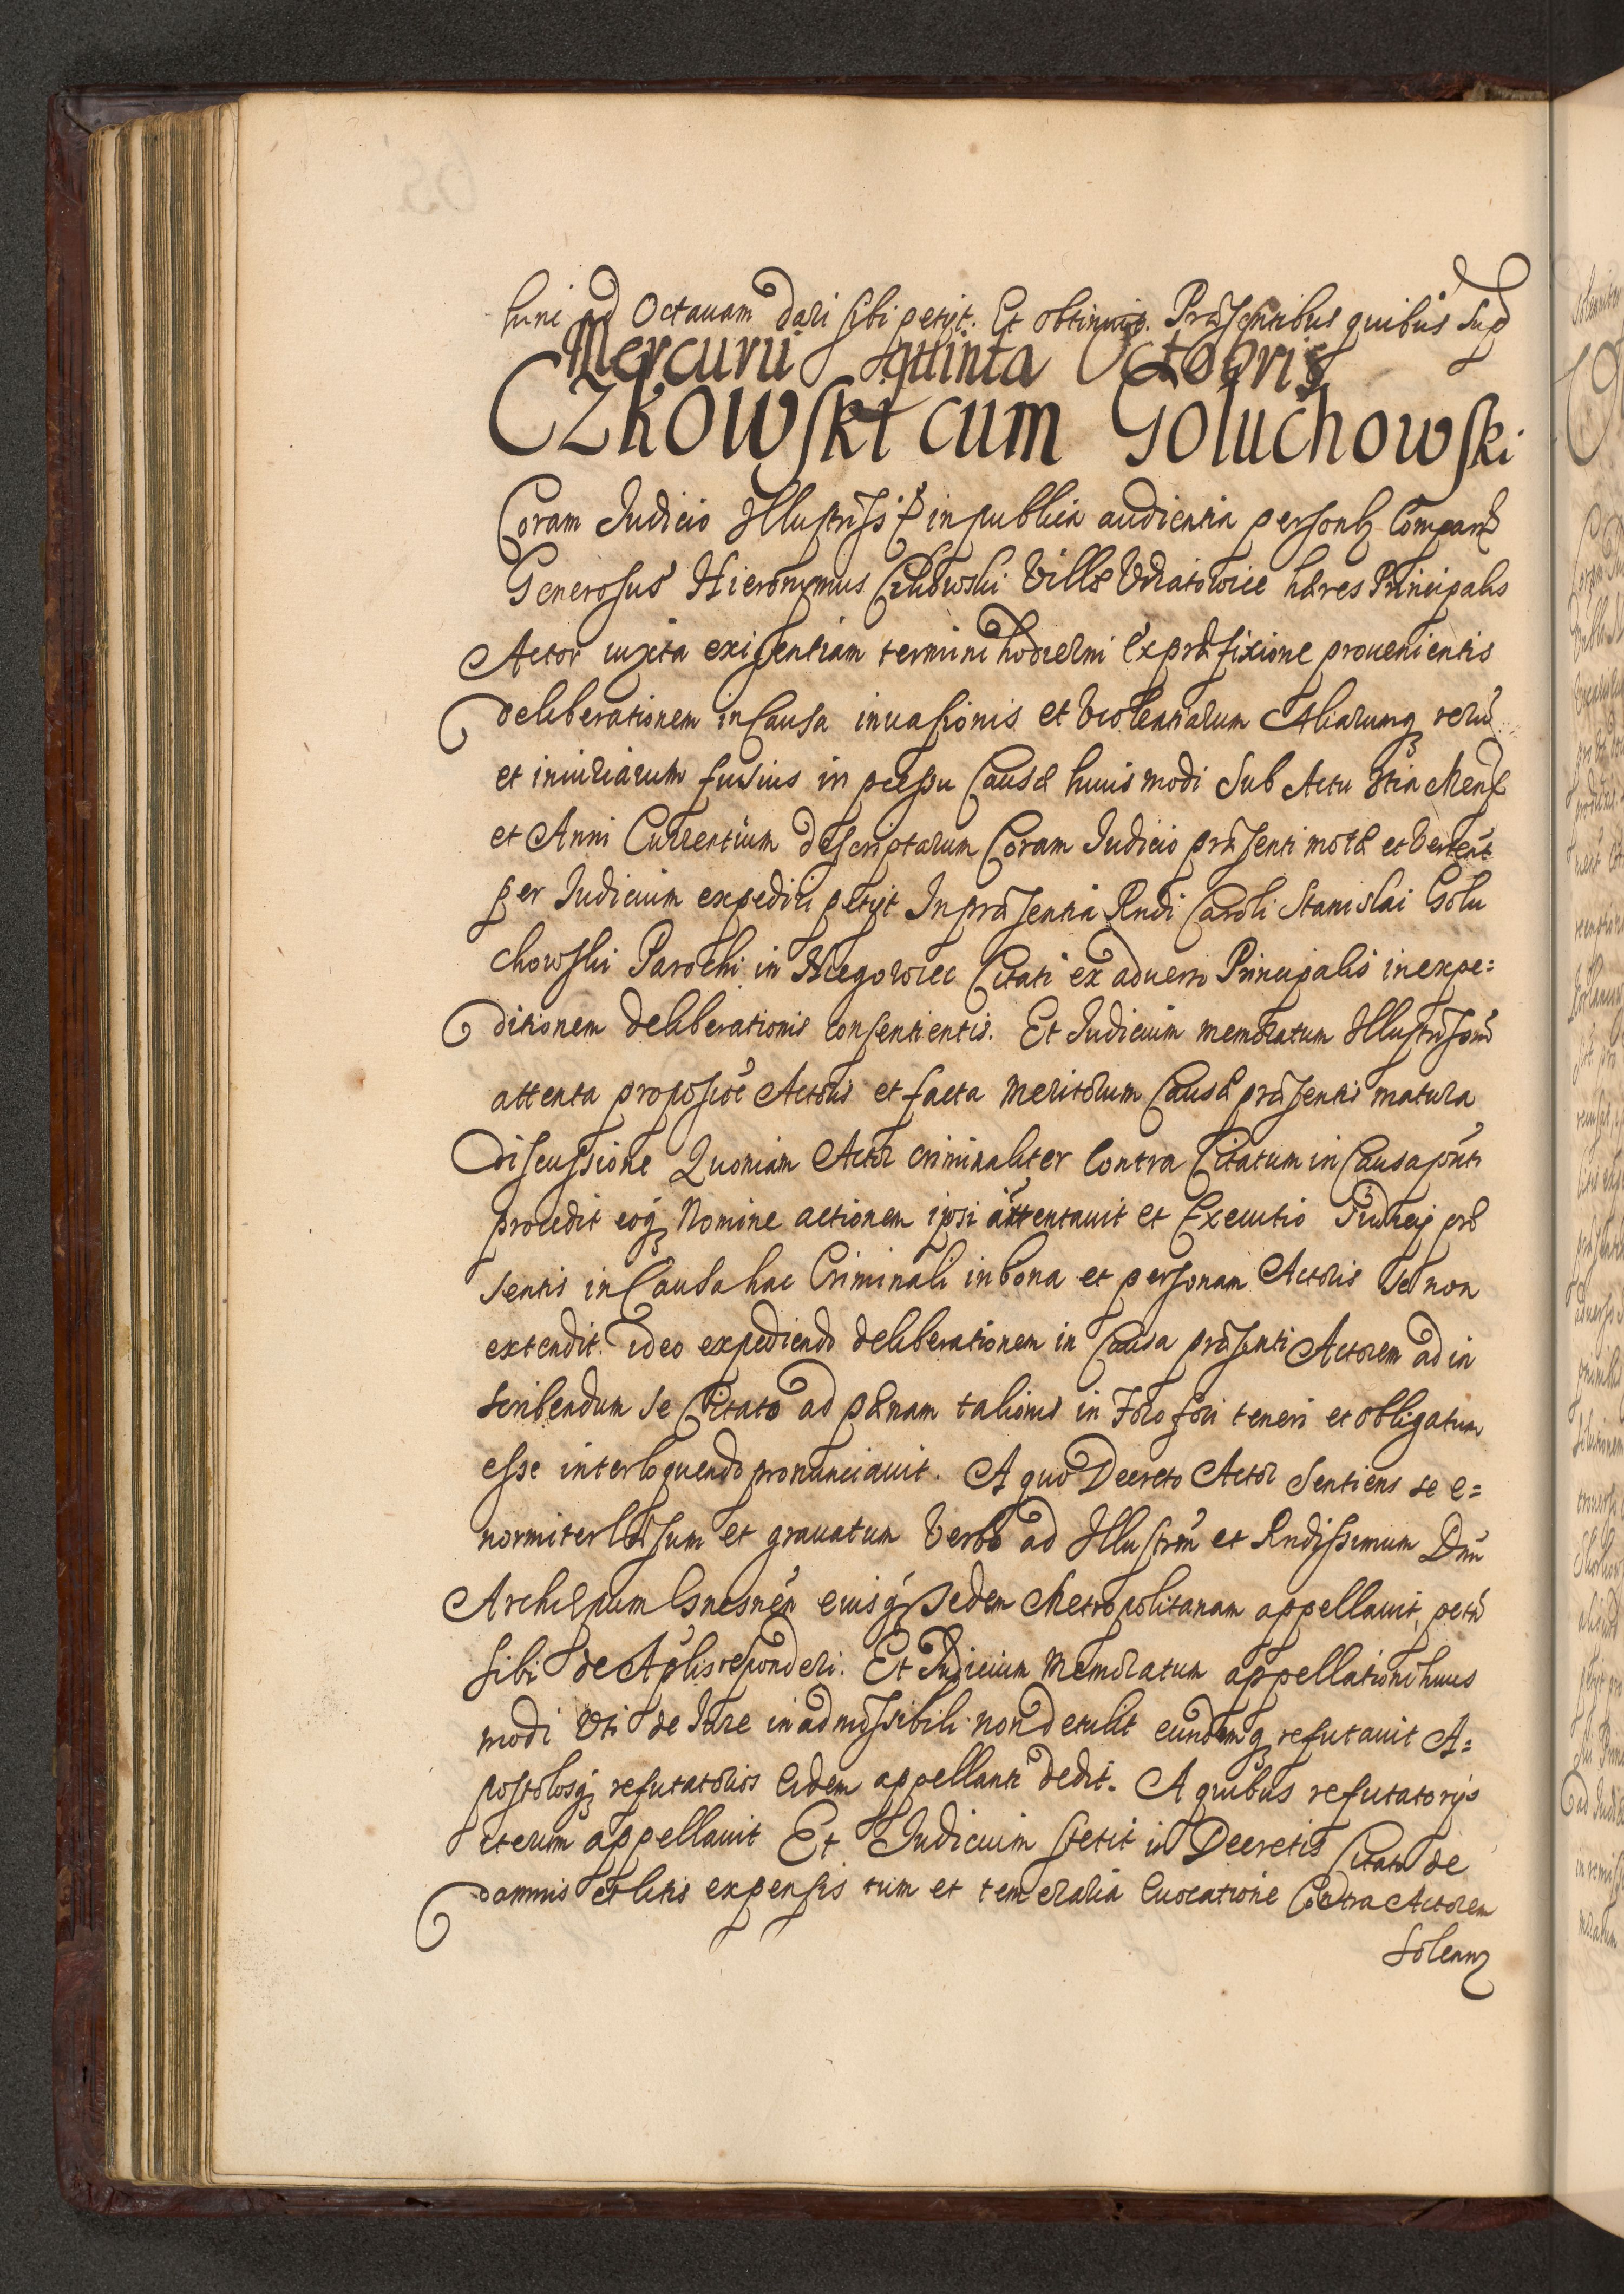 hunc ad Octauam dari sibi petijt. Et obtinuit. Præsentibus quibus sup
Mercurii quinta Octobris
Czkowski cum Goluchowski
Coram Judicio Illustriss. in publica audientia personlr Comparens
Generosus Hieronymus Czkowski Villæ Vdiatowice hæres Principalis
Actor iuxta exigentiam termini hodierni ex præfixione prouenientis
deliberationem in Causa inuasionis et violentiarum Aliarumq reru
et iniuriarum fusius in pcessu Causæ huiusmodi sub Actu Mens
et Anni Currentium descriptarum Coram Judicio præsenti motæ et vertent
per Judicium expediri petijt In præsentia Rndi Caroli Stanislai Golu
chowski Parochi in Niegowiec Citati ex aduerso Principalis in expe=
ditionem deliberationis consentientis. Et Judicium memoratum Illustrissimi
attenta proposioe Actoris et facta meritorum Causæ præsentis matura
discussione Quoniam Actor criminaliter contra Citatum in Causa pnti
procedit eoq Nomine actionem ipsi attentauit et Executio Judicij præ
sentis in Causa hac Criminali in bona et personam Actoris se non
extendit. ideo expediendo deliberationem in Causa præsenti Actorem ad in
scribendum se Citato ad pænam talionis in Foro fori teneri et obligatum
esse interloquendo pronunciauit. A quo Decreto Actor sentiens se e=
normiter læsum et grauatum verbo ad Illustrm et Rndissimum Dnu
Archiepum Gnesnen eiusq sedem Metropolitanam appellauit, petu
sibi de Aplis responderi. Et Judicium Memoratum appellationi huius
modi vti de Iure inadmissibili non detulit eundemq refutauit A=
postolosq refutatorios eidem appellanti dedit. A quibus refutatorijs
iterum appellauit Et Judicium stetit in Decretis Citato de
damnis et litis expensis tum et temeraria euocatione Contra Actorem
Solennr